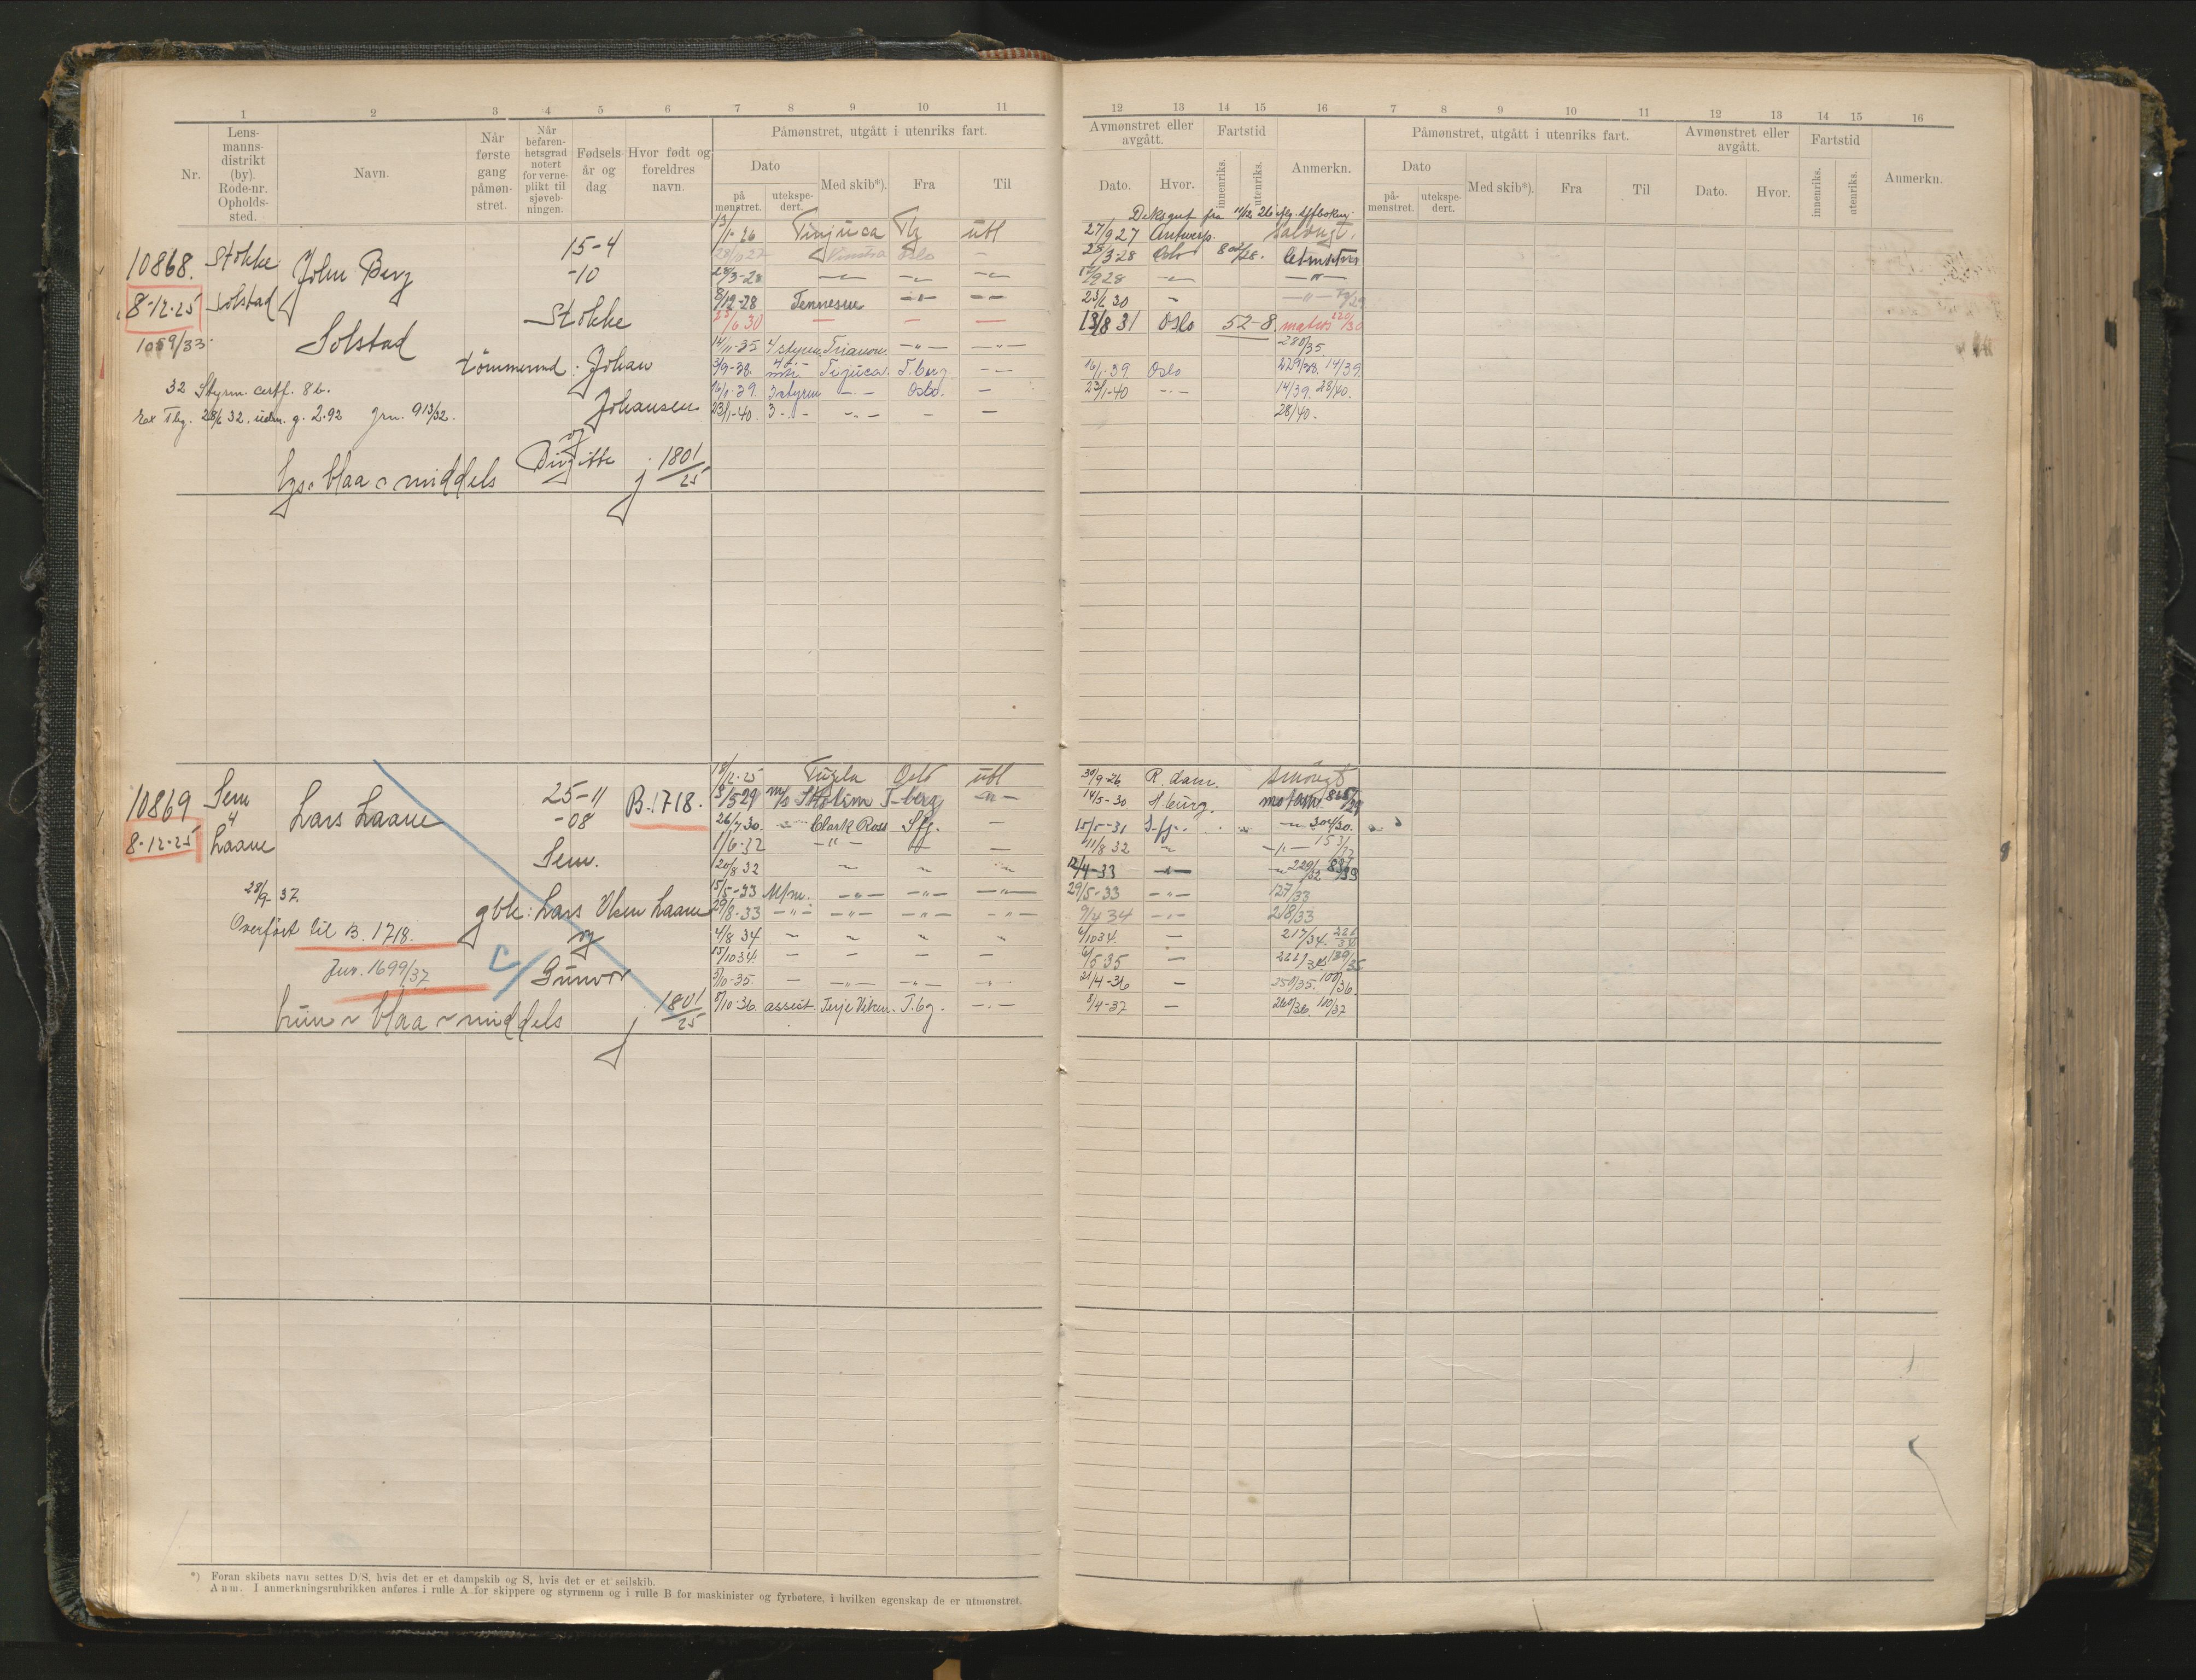 1 2 3 4 5 6 7 8 9 10 11
Nr.
Lens-
manns-
distrikt
(by).
Rode-nr.
Opholds-
sted.
Navn.
Når
første
gang
påmøn-
stret.
Når
befaren-
hetsgrad
notert
for verne-
plikt til
sjøveb-
ningen.
Fødsels-
år og
dag
Hvor født og
foreldres
navn.
Påmønstret, utgått i utenriks fart.
Dato
på
mønstret.
utekspe-
dert.
Med skib*).
Fra
Til
10868.
8-12-25
1059/33.
Stokke
Solstad
John Berg
Solstad
15-4
-10
Stokke
tømmermd. Johan
Johansen
og
Birgitte
j 1801/25
32 Styrm. certf. 86.
Tbg. 28/6 32. utdn. g. 2.92 Jrn. 913/32.
lys - blaa - middels
13/1-26 Tinjuca Tbg utl
28/10 27 Oslo -
28/3-28 - - -
8/12-28 Tennessee - -
23/6 30 - - -
14/11-35 4 styrm. Trianon. -"- -"-
3/9-38. Tijuca. T.berg -
16/1-39. 3 styrm - - Oslo. -
23/1-40. 3 - - - - -
10869
8-12-25
Sem
4
Laane
Lars Laane
25-11
-08
Sem.
B. 1718.
28/9- 37.
Overført til B. 1718.
Jnr. 1699/37
gbr: Lars Olsen Laane
og
Gunvor
j 1801/25
brun - blaa - middels
18/12-25 Tugela Oslo utl
8/5-29 m/s T-berg -"-
26/7-30. - Clark Ross Sfj. -
1/6-32 -"- -
20/8 32 - - -
15/5-33 M/m. -"- -"- -"-
29/8-33 -"- -"- -"- -"-
4/8 34 - - - -
15/10 34. - - - -
5/10-35. - -"- -"- -"-
8/10-36. assist. Terje Viken. T.bg. -"-
*) Foran skibets navn settes D/S, hvis det er et dampskib og S, hvis det er et seilskib.
Anm. I anmerkningsrubrikken anføres i rulle A for skippere og styrmenn og i rulle B for maskinister og fyrbøtere, i hvilken egenskap de er utmønstret.
12 13 14 15 16 7 8 9 10 11 12 13 14 15 16
Avmønstret eller
avgått.
Dato.
Hvor.
Fartstid
innenriks.
utenriks.
Anmerkn.
Påmønstret, utgått i utenriks fart.
Dato
på-
mønstret.
utekspe-
dert.
Med skib*).
Fra
Til
Avmønstret eller
avgått.
Dato.
Hvor.
Fartstid
innenriks.
utenriks.
Anmerkn.
Deksgut fra 11/12 26
27/9 27 Antwerp.
28/3-28 Oslo
17/9 28 - -"-
23/6 30 - -"-
13/8 31 Oslo 52-8. matros 220/30
280/35.
16/1-39. Oslo 229/38. 14/39.
23/1-40 - 14/39. 28/40.
28/40.
30/9-26 R.dam. Smörgt
14/5-30 H.burg.
15/5-31 S.fj. - 304/30.
11/8 32 - -"- 153/32
12/4-33 - 229/32
29/5-33 -"- 127/33
9/4 34 -"- 218/33
6/10 34. - 217/34.
6/5 35 - 139/35
21/4-36 - 250/35. 100/36.
8/4-37 - 260/36. 110/37